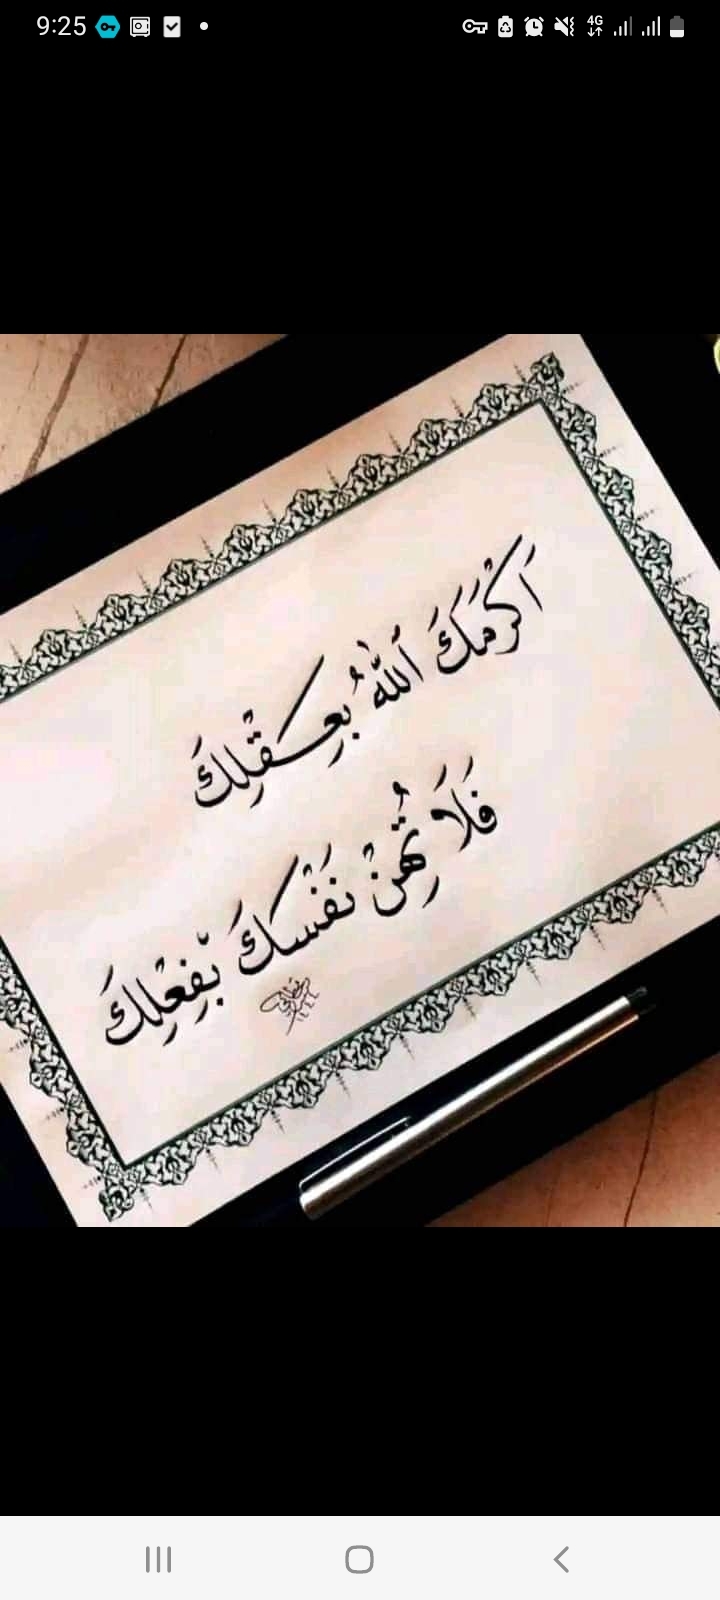 9:25
4G
أَكْرَمَكَ اللّٰهُ بِعَقْلِكَ
فَلَا تُهِنْ نَفْسَكَ بِفِعْلِكَ